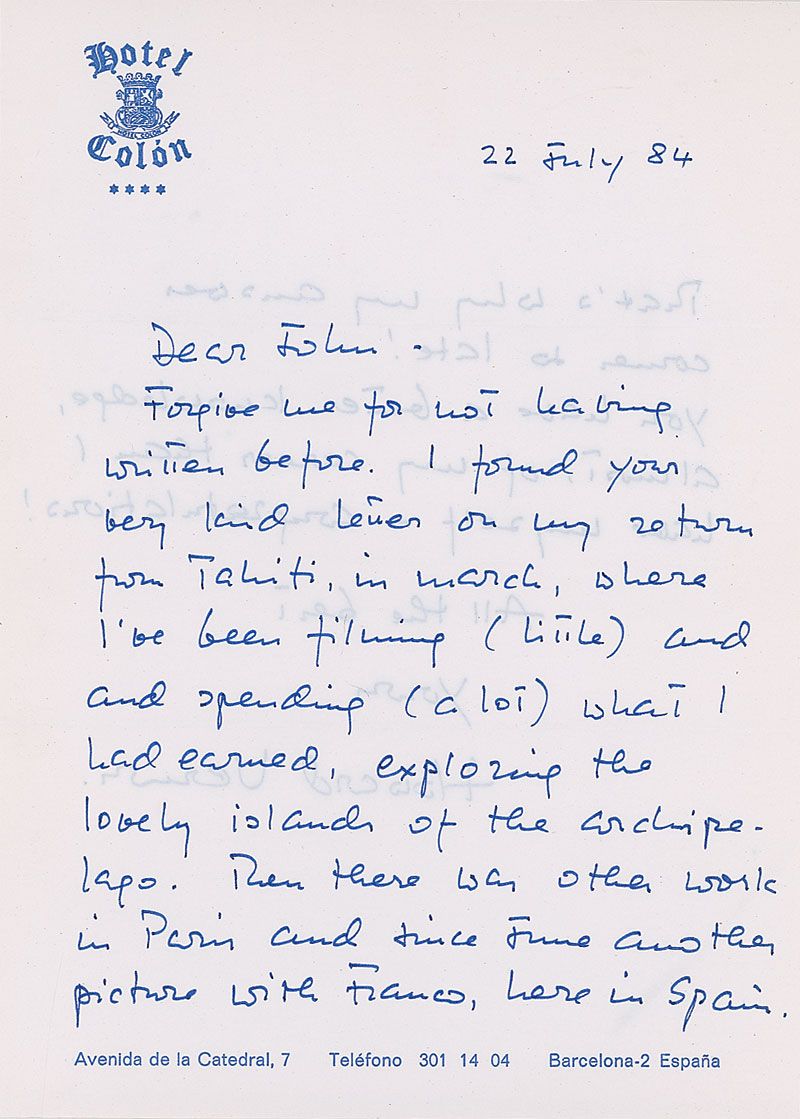 Hotel
HOTEL COLON
Colón
22 July 84
Dear John -
Forgive me for not having
written before. I found your
very kind letter on my return
from Tahiti, in march, where
I've been filming (little) and
and spending (a lot) what I
had earned, exploring the
lovely islands of the archipe-
lago. Then there was other work
in Paris and since June another
picture with Franco, here in Spain.
Avenida de la Catedral, 7 Teléfono 301 14 04 Barcelona-2 España